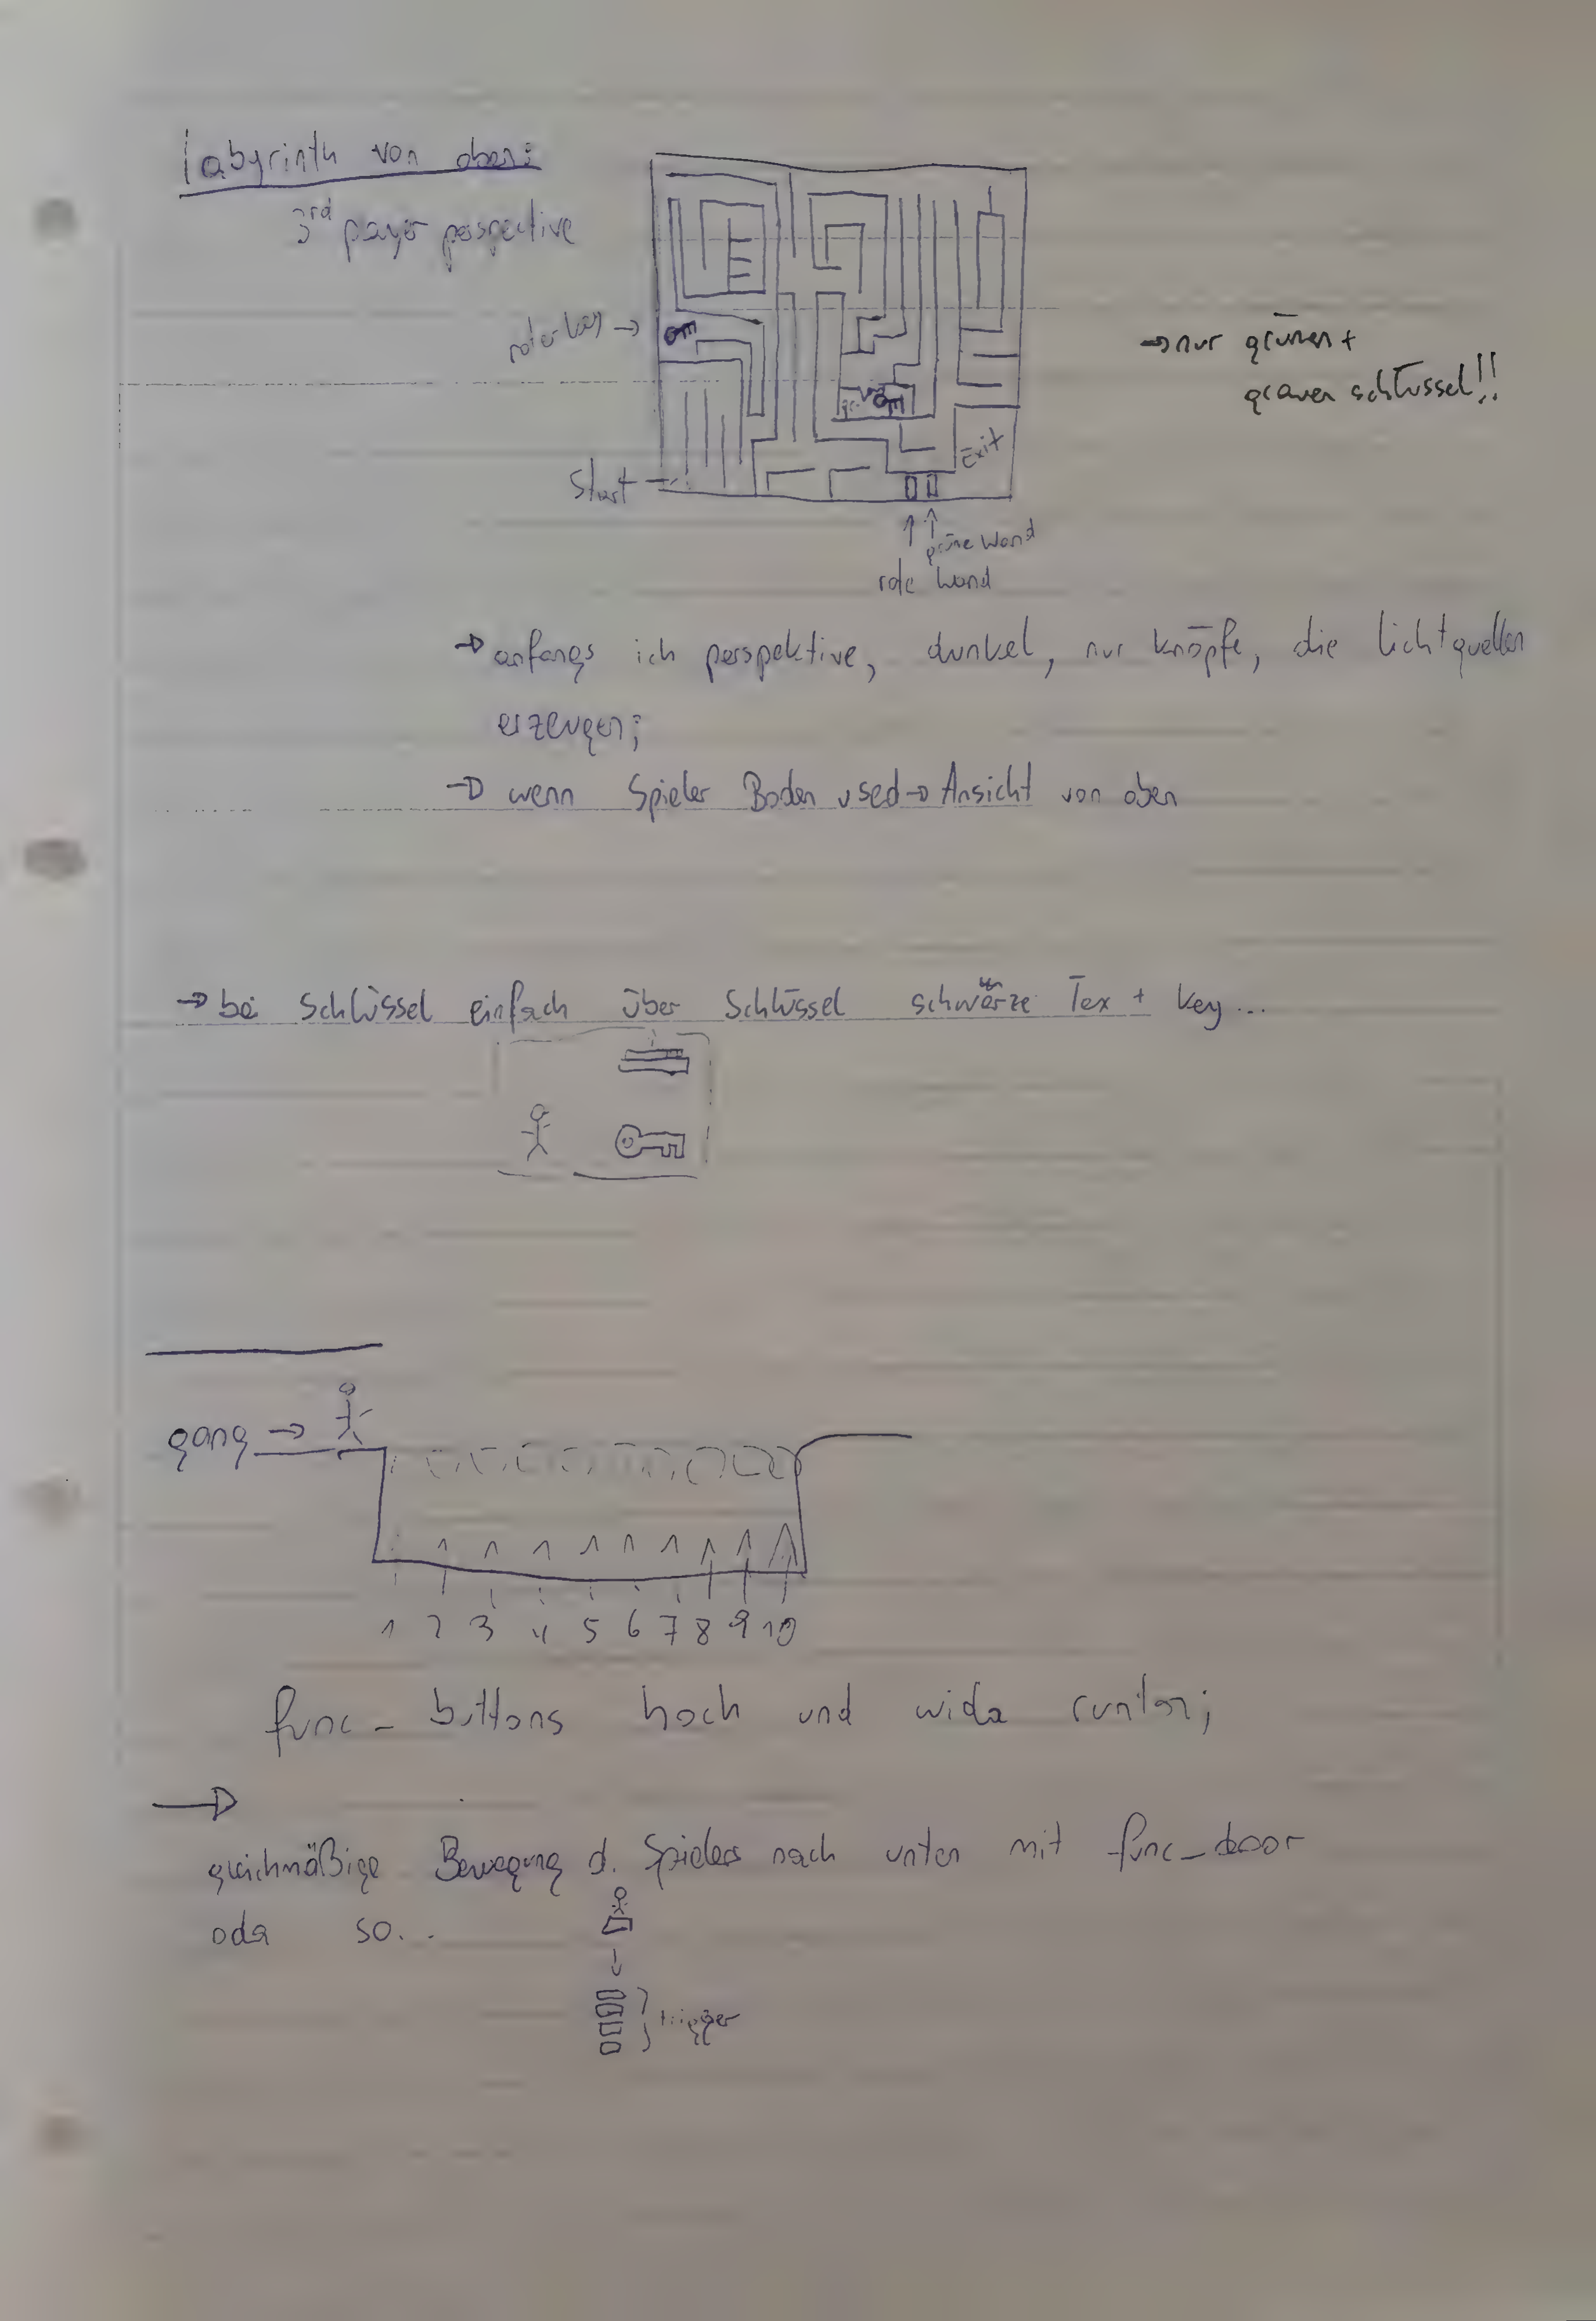 Labyrinth von oben:
3rd payer perspective
roter key →
→ nur grünen +
grauen schlüssel!!
Start
Exit
grüne Wand
rote Wand
→ anfangs ich perspektive, dunkel, nur knöpfe, die lichtquellen
erzeugen;
→ wenn Spieler Boden used → Ansicht von oben
→ bei Schlüssel einfach über Schlüssel schwarze Tex + key...
gang →
1 2 3 4 5 6 7 8 9 10
func_buttons hoch und wida runter;
→
gleichmäßige Bewegung d. Spielers nach unten mit func_door
oda so...
trigger